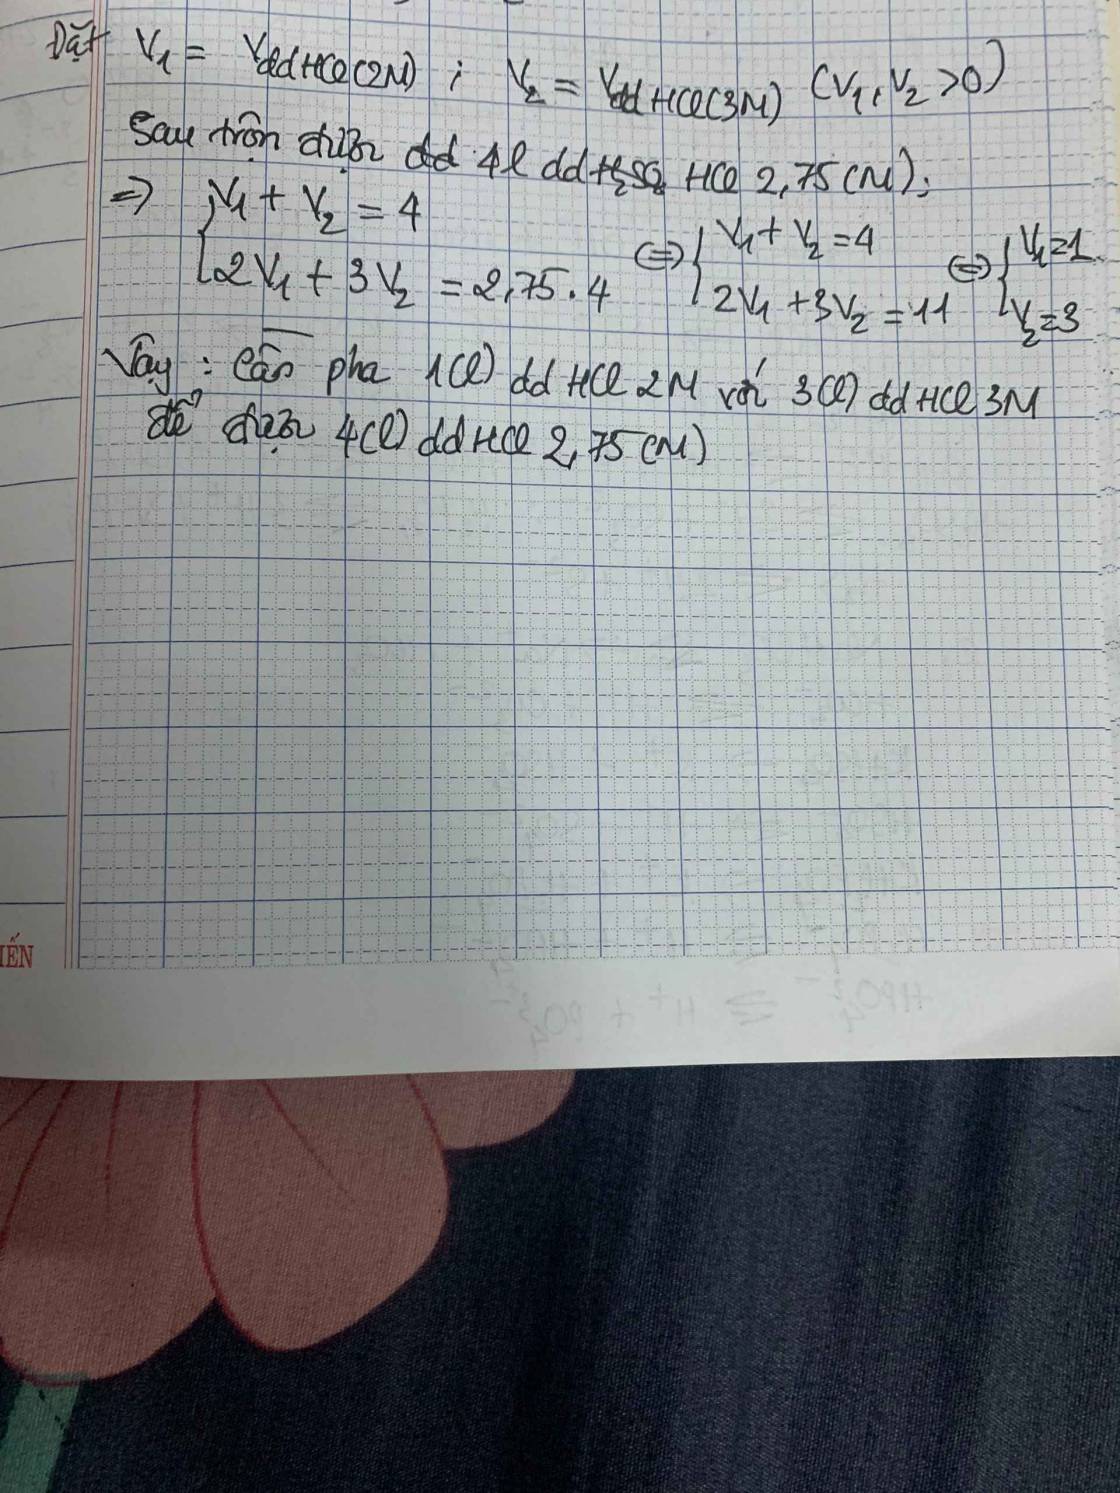 Đặt V₁ = Vdd HCl (2M) ; V₂ = Vdd HCl (3M) (V₁, V₂ > 0)
Sau trộn được dd 4l dd H₂SO₄ HCl 2,75 (M);
=> { V₁ + V₂ = 4
2V₁ + 3V₂ = 2,75 . 4
<=> { V₁ + V₂ = 4
2V₁ + 3V₂ = 11
<=> { V₁ = 1
V₂ = 3
Vậy : Cần pha 1(l) dd HCl 2M với 3(l) dd HCl 3M
để được 4(l) dd HCl 2,75 (M)
IẾN